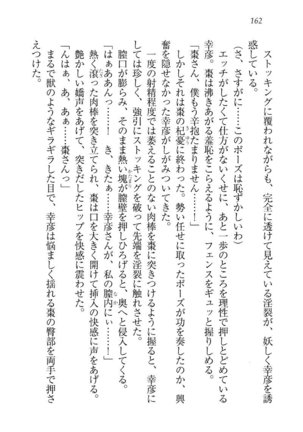 162
ストッキングに覆われながらも、完全に透けて見えている淫裂が、妖しく幸彦を誘
惑している。
（さ、さすがに……このポーズは恥ずかしいわ）
エッチがしたくて仕方がないくせに、あと一歩のところを理性で押しとどめている
幸彦。棗は沸きあがる羞恥をこらえるように、フェンスをギュッと握りしめる。
「棗さん、僕もう辛抱たまりません……！」
しかしそれは棗の杞憂に終わった。勢い任せに取ったポーズが功を奏したのか、興
奮を隠せなかった幸彦がしがみついてきた。
一度の射精程度では萎えることのない肉棒を棗に突きつけるように握ると、幸彦に
しては珍しく、強引にストッキングを破って先端を淫裂に触れさせた。
膣口が膨らみ、そのまま熱い塊が膣壁を押しひろげると、奥へと侵入してくる。
「あっ、あああんっ……！　き、きたぁ……幸彦さんが、私の膣内にぃ……！」
熱く滾った肉棒を突き立てられ、棗は口を大きく開けて挿入の快感に声をあげる。
艶かしい嬌声をあげて、突きだしたヒップを快感に震わせた。
「んはぁ、あ、あぁ……棗さんっ！」
まるで獣のようなギラギラした目で、幸彦は悩ましく揺れる棗の臀部を両手で押さ
えつけた。